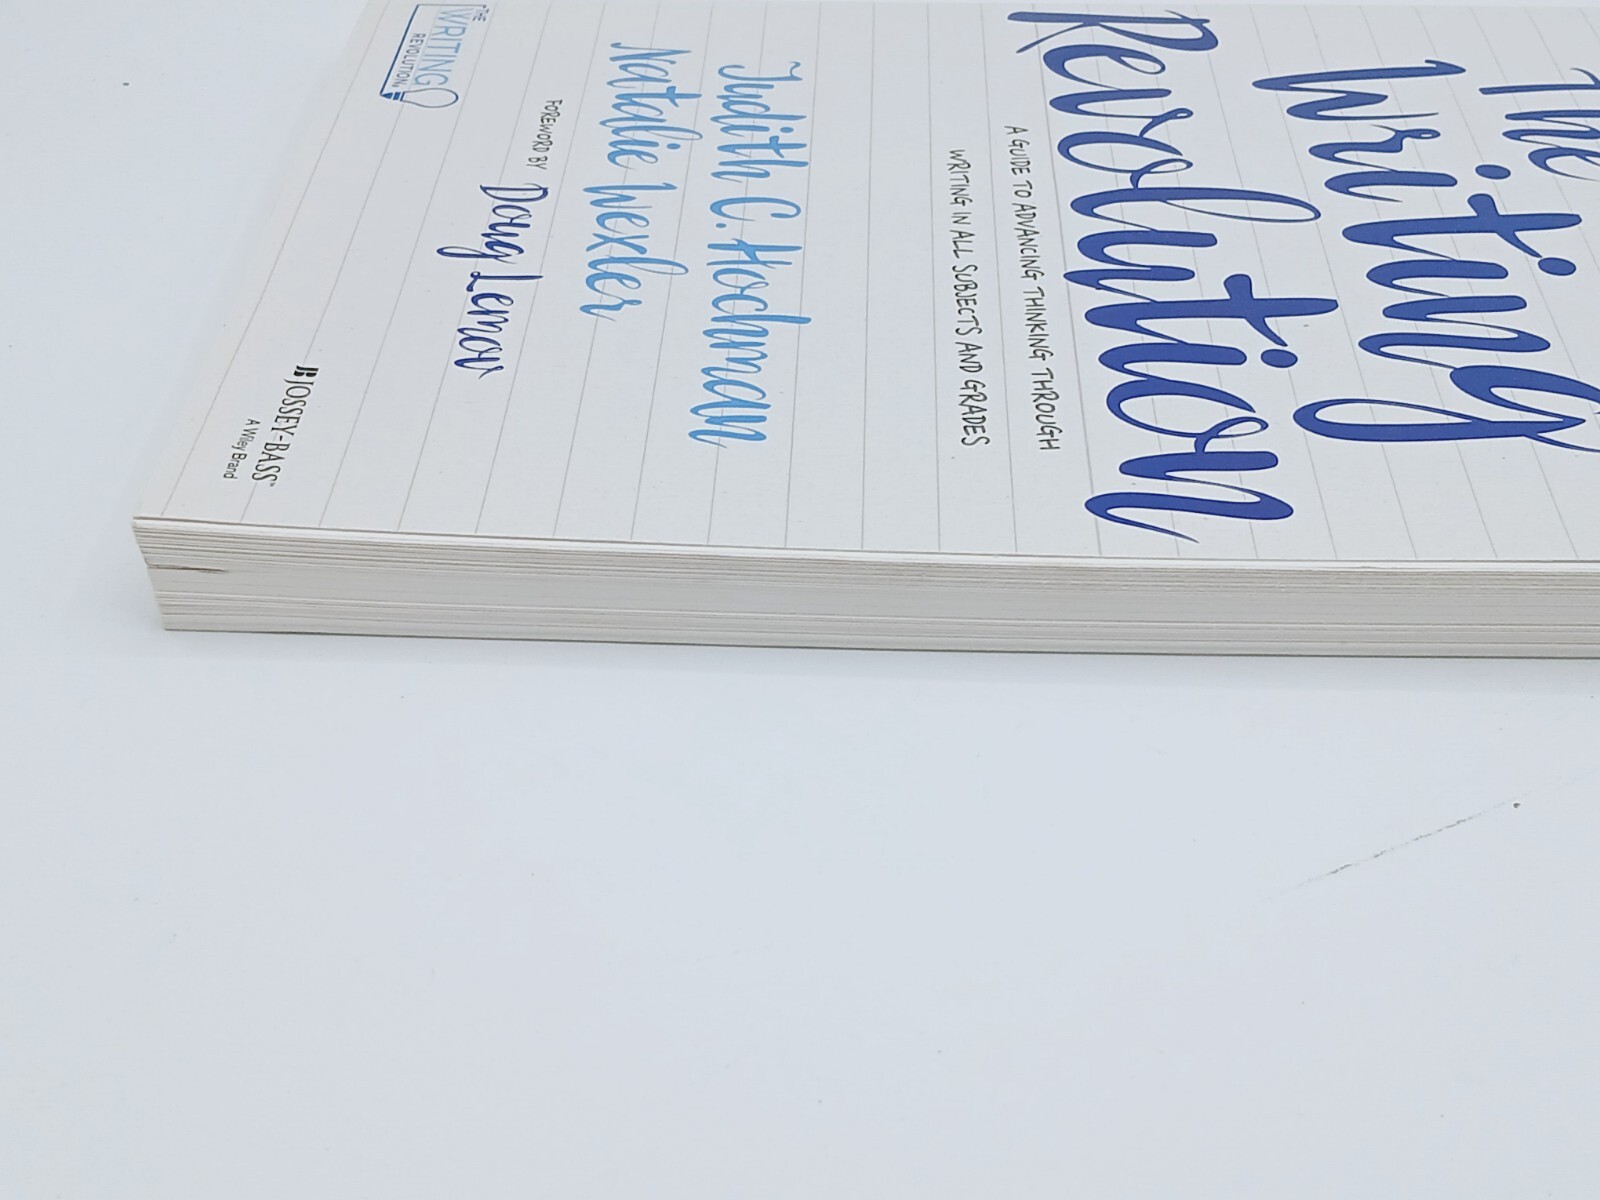 The
Writing
Revolution
A GUIDE TO ADVANCING THINKING THROUGH
WRITING IN ALL SUBJECTS AND GRADES
Judith C. Hochman
Natalie Wexler
FOREWORD BY Doug Lemov
THE
WRITING
REVOLUTION
JB JOSSEY-BASS™
A Wiley Brand